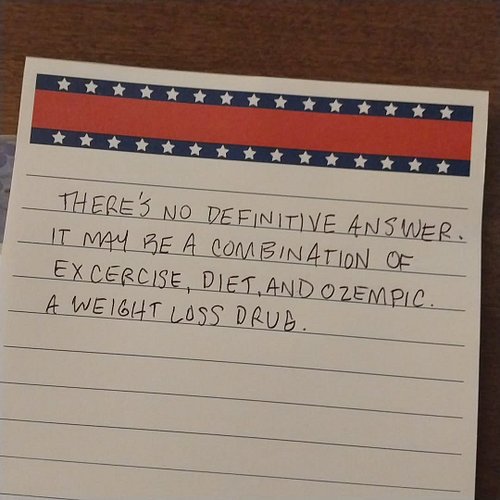 THERE'S NO DEFINITIVE ANSWER.
IT MAY BE A COMBINATION OF
EXCERCISE, DIET, AND OZEMPIC.
A WEIGHT LOSS DRUG.